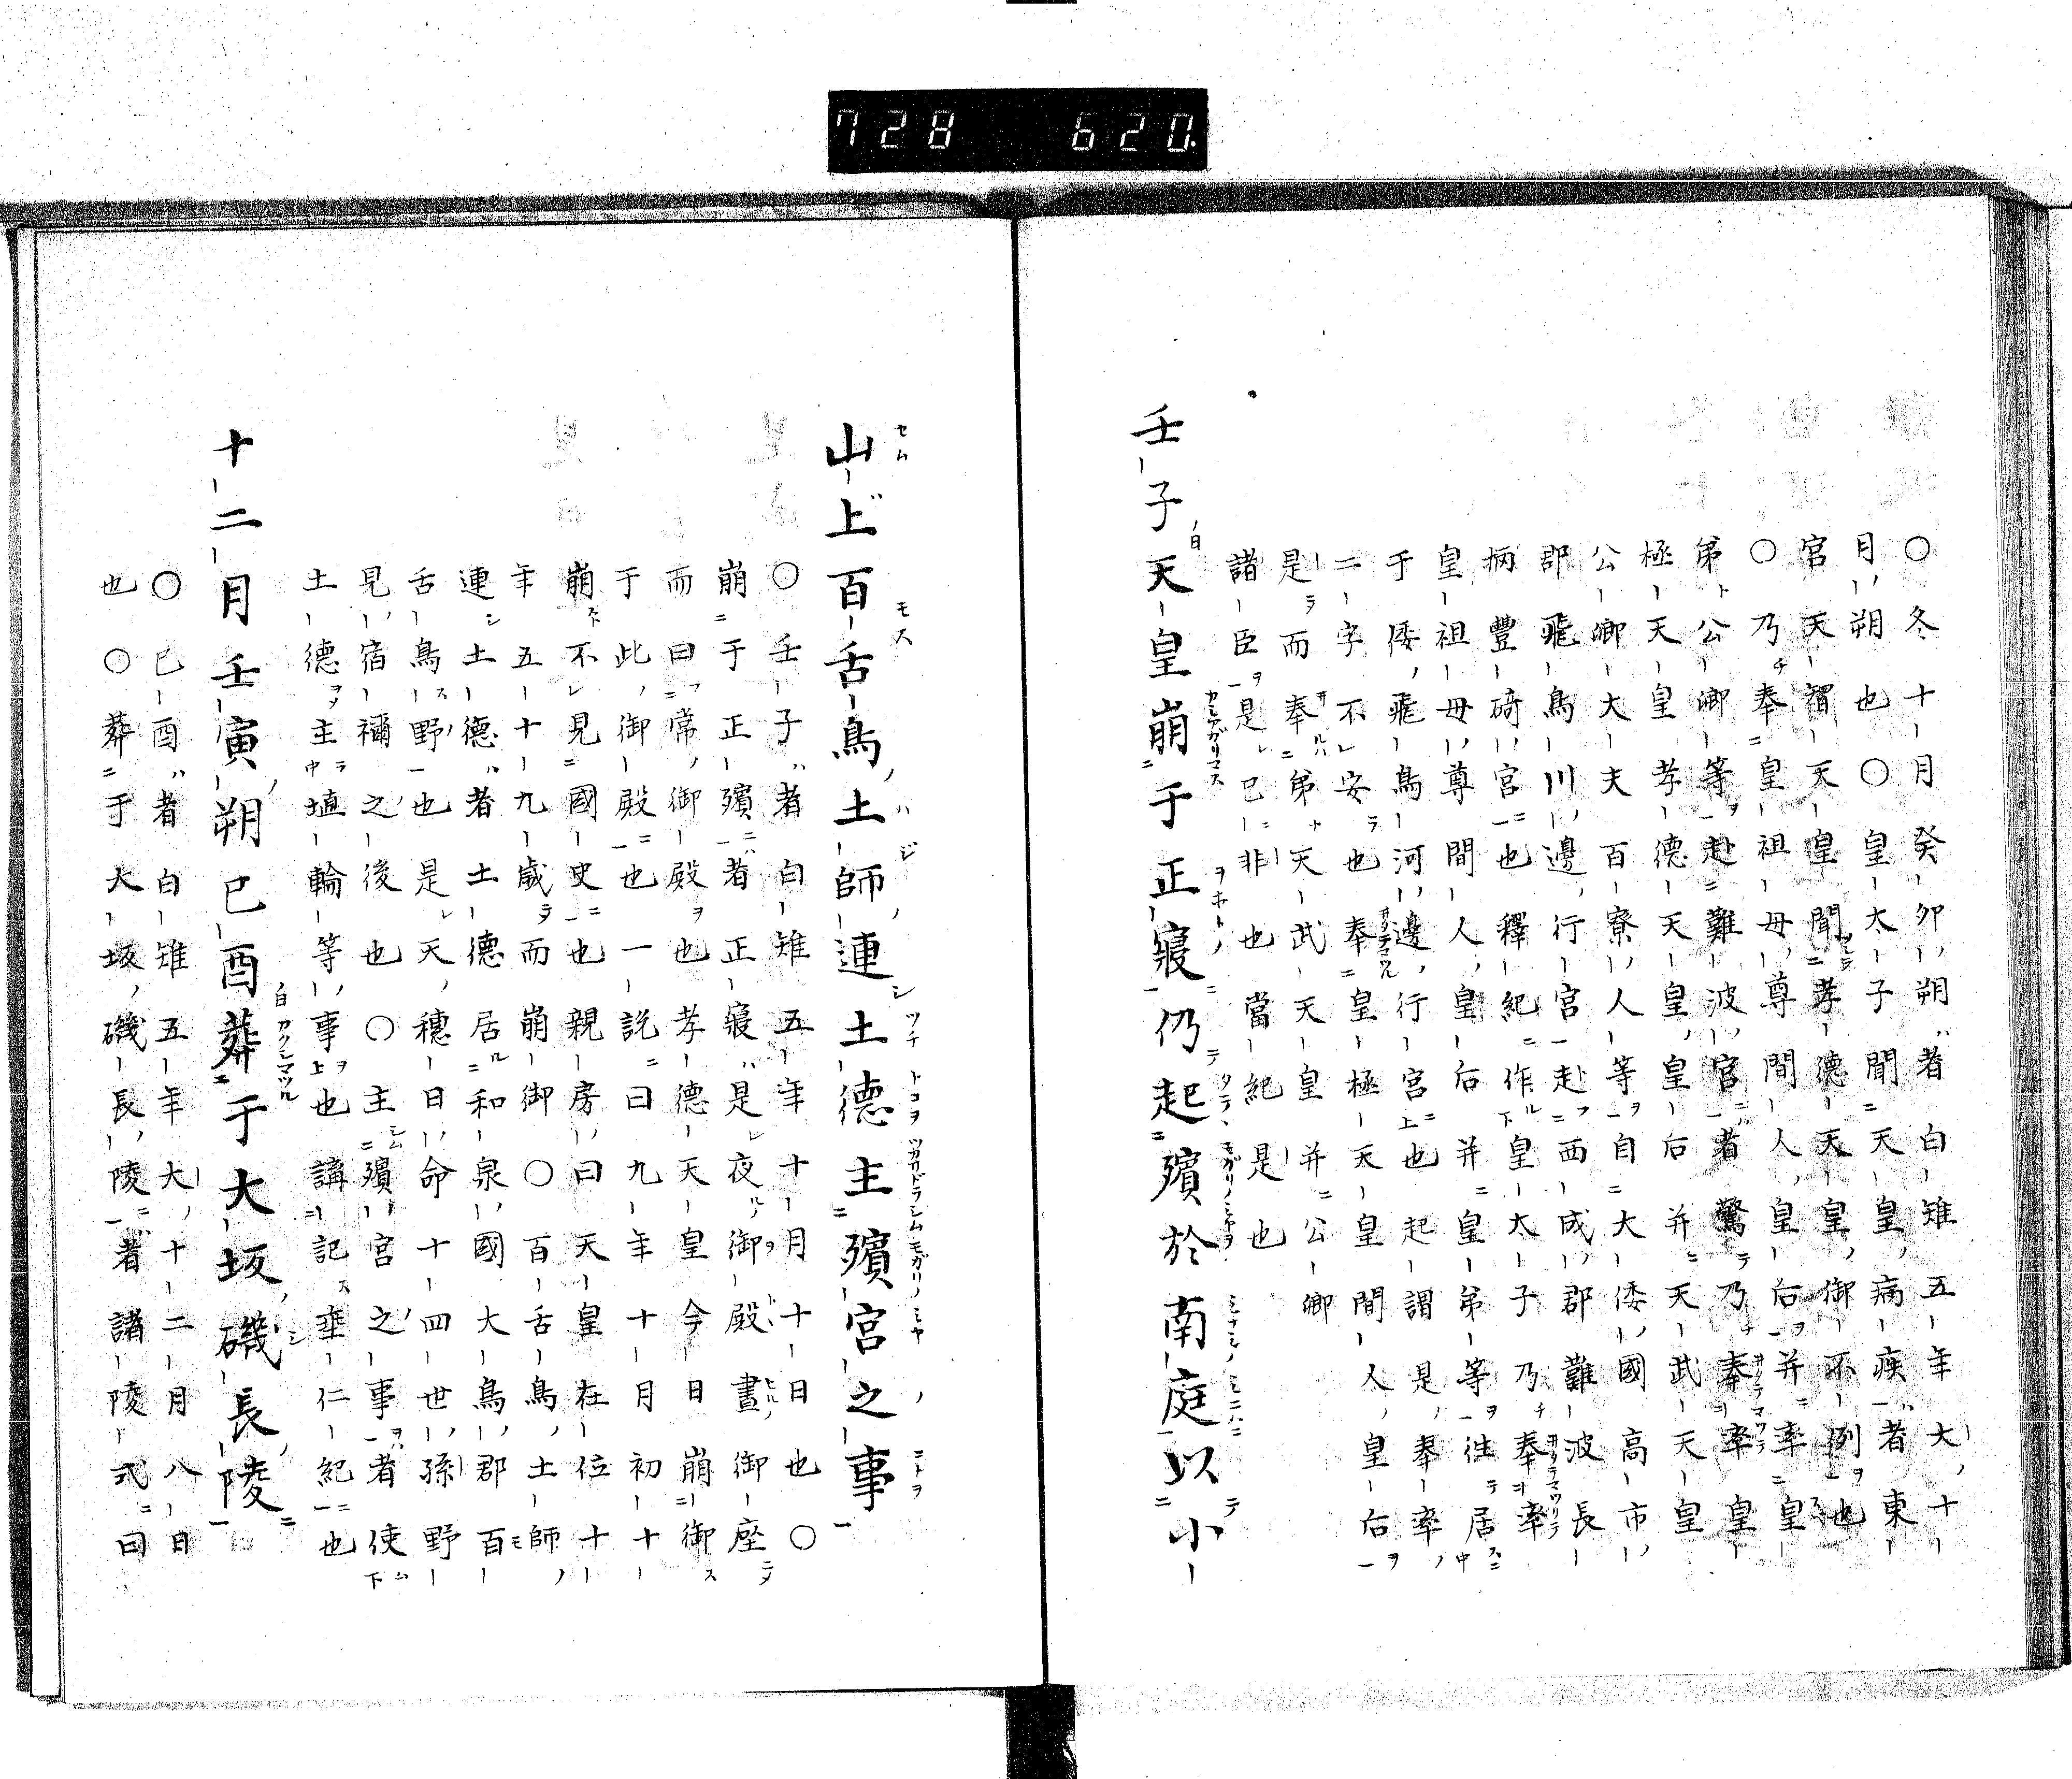 728 620.
○冬十月癸卯朔者白雉五年大十
月朔也○皇太子聞天皇病疾者東
宮天智天皇聞孝德天皇御不例也
○乃奉皇祖母尊間人皇后并率皇
弟公卿等赴難波宮者驚乃奉率皇
極天皇孝德天皇皇后并天武天皇
公卿大夫百寮人等自大倭國高市
郡飛鳥川邊行宮赴西成郡難波長
柄豐碕宮也釋紀作皇太子乃奉率
皇祖母尊間人皇后并皇弟等往居
于倭飛鳥河邊行宮也起謂是奉率
二字不安也奉皇極天皇間人皇后
是而奉弟天武天皇并公卿
諸臣是已非也當紀是也
壬子天皇崩于正寢仍起殯於南庭以小
山上百舌鳥土師連土德主殯宮之事
○壬子者白雉五年十月十日也○
崩于正殯者正寢是夜御殿晝御座
而曰常御殿也孝德天皇今日崩御
于此御殿也一說曰九年十月初十
崩不見國史也親房曰天皇在位十
年五十九歲而崩御○百舌鳥土師
連土德者土德居和泉國大鳥郡百
舌鳥野也是天穗日命十四世孫野
見宿禰之後也○主殯宮之事者使
土德主埴輪等事也講記垂仁紀也
十二月壬寅朔己酉葬于大坂磯長陵
○己酉者白雉五年大十二月八日
也○葬于大坂磯長陵者諸陵式曰